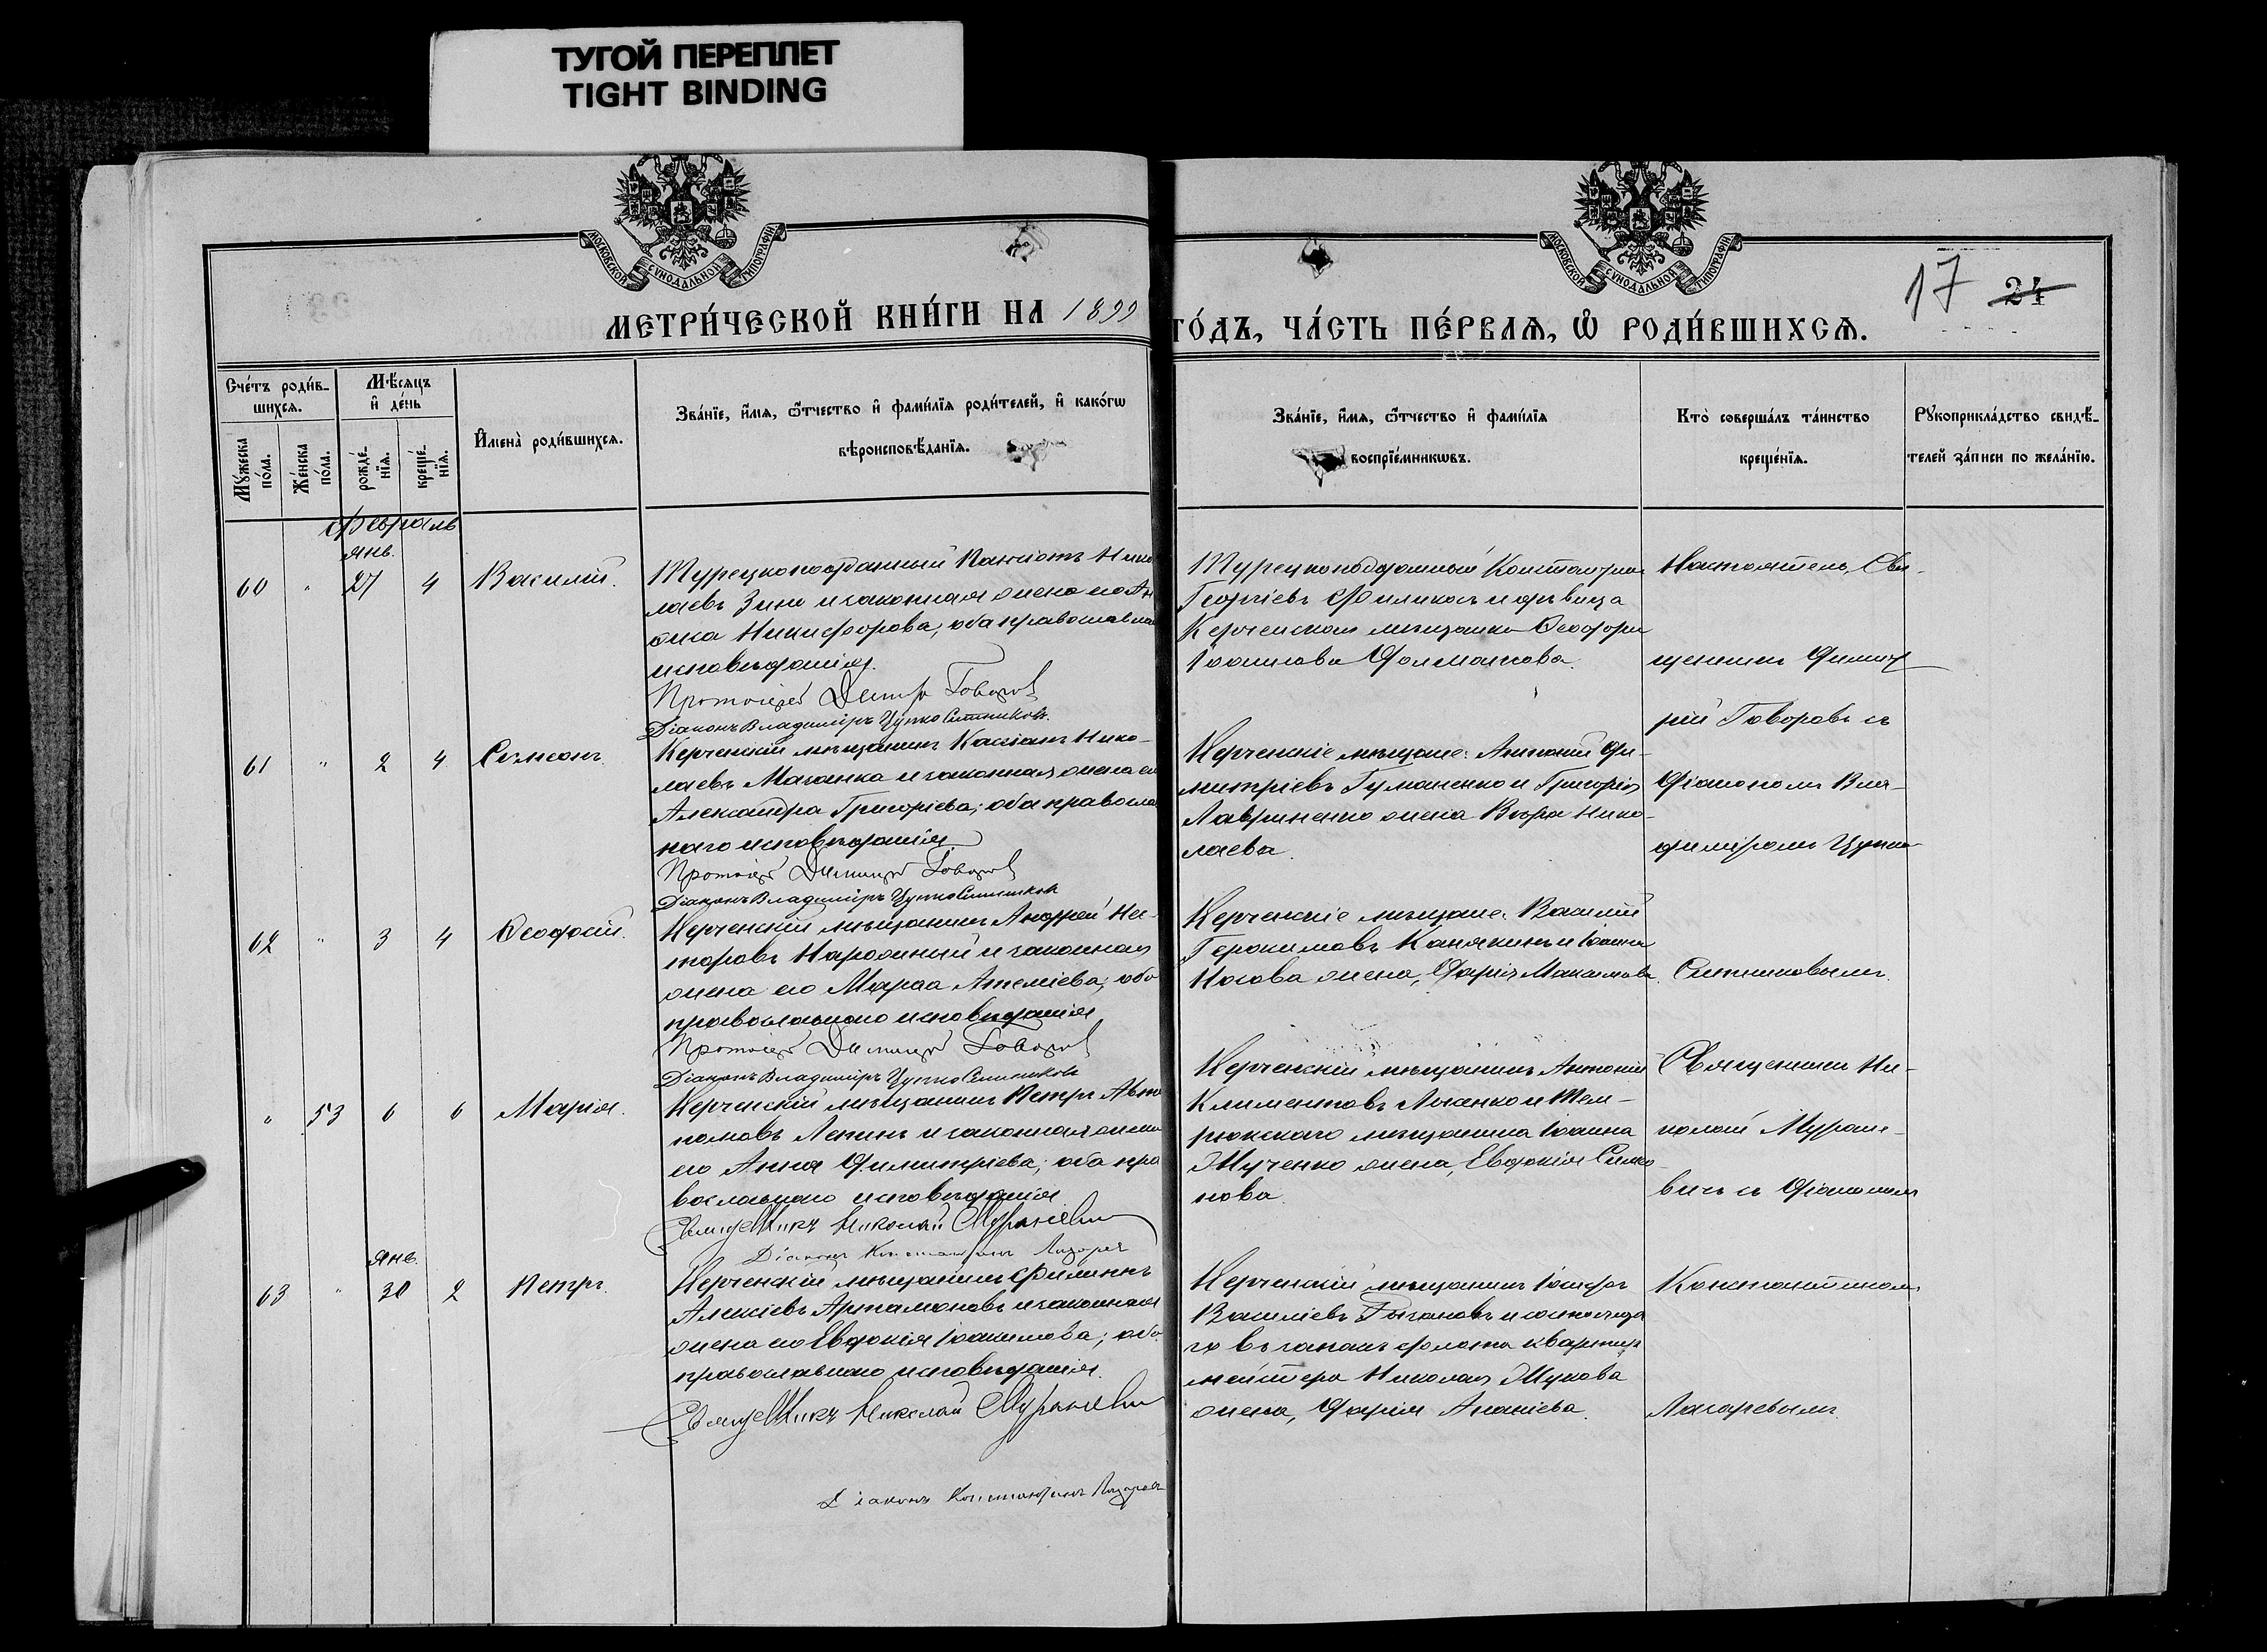 ТУГОЙ ПЕРЕПЛЕТ
TIGHT BINDING
МОСКОВСКОЙ СѴНОДАЛЬНОЙ ТИПОГРАФІИ
МОСКОВСКОЙ СѴНОДАЛЬНОЙ ТИПОГРАФІИ
17 24
МЕТРИ́ЧЕСКОЙ КНИ́ГИ НА 1899
ГО́ДЪ, ЧА́СТЬ ПЕ́РВАѦ, Ѿ РОДИ́ВШИХСѦ.
Сче́тъ роди́в-
шихсѧ.
Мѣ́сѧцъ
и де́нь
Мꙋ́жеска по́ла.
Же́нска по́ла.
рожде́-
нїѧ.
креще́-
нїѧ.
И҆мена̀ роди́вшихсѧ.
Зва́нїе, и҆́мѧ, ѻ҆́тчество и҆ фами́лїѧ роди́телей, и҆ како́гѡ
вѣроисповѣ́данїѧ.
Зва́нїе, и҆́мѧ, ѻ҆́тчество и҆ фами́лїѧ
воспрїе́мникѡвъ.
Кто̀ соверша́лъ та́инство
креще́нїѧ.
Рꙋкоприкла́дство свидѣ́-
телей за́писи по жела́нїю.
Февраль
янв.
60 " 27 4 Василій.
Турецкоподданный Нико
лаевъ Зино и законная жена его
Никифорова, оба православна
исповѣданія.
Протоіерей Димитр Говоров
Діаконъ Владиміръ Цупко Ситников.
Турецкоподданный Константин
Георгіевъ Филикос и дѣвица
Керченская мѣщанка Ѳеодора
Настоятель, Свя-
щенник Димит
рій Говоровъ съ
Діакономъ Вла-
диміромъ Цупко
Ситниковымъ.
61 " 2 4 Симеонъ.
Керченскій мѣщанинъ Кассіанъ Нико-
лаевъ и законная жена ег
Александра Григоріева; оба правосла
наго исповѣданія
Протоіерей Димитрій Говоров
Діаконъ Владиміръ Цупко Ситников
Керченскіе мѣщане: Антоній Ди-
митріевъ Гуманенко и Григорія
Лавриненко жена Вѣра Нико-
лаева.
62 " 3 4 Ѳеодосій.
Керченскій мѣщанинъ Андрей Нес-
торовъ и законная
жена его Марѳа; оба
православнаго исповѣданія
Протоіерей Димитрій Говоров
Діаконъ Владиміръ Цупко Ситников
Керченскіе мѣщане: Василій
Герасимовъ Канякинъ и Іоанна
Носова жена, Дарія Максимова.
" 53 6 6 Марія.
Керченскій мѣщанинъ Петръ Авто
номовъ Лепинъ и законная жена
его Анна Димитріева; оба пра
вославнаго исповѣданія
Священникъ Николай Мураневич
Діаконъ Константинъ Лазарев
Керченскій мѣщанинъ Антоній
Климентовъ и Тем-
рюкскаго мѣщанина Іоанна
жена, Евдокія Симео-
нова.
Священник Ни-
колай Муране-
вичъ съ Діакономъ
Константином
Лазаревымъ.
янв.
63 " 30 2 Петръ.
Керченскій мѣщанинъ Филиппъ
Алексіевъ Артамоновъ и законная
жена его Евдокія Іоакимова; оба
православнаго исповѣданія.
Священникъ Николай Мураневич
Діаконъ Константинъ Лазарев
Керченскій мѣщанинъ Іосифъ
Василіевъ и состояща
го въ запасѣ флота квартир
мейстера Николая Жукова
жена, Дарія Ананіева.